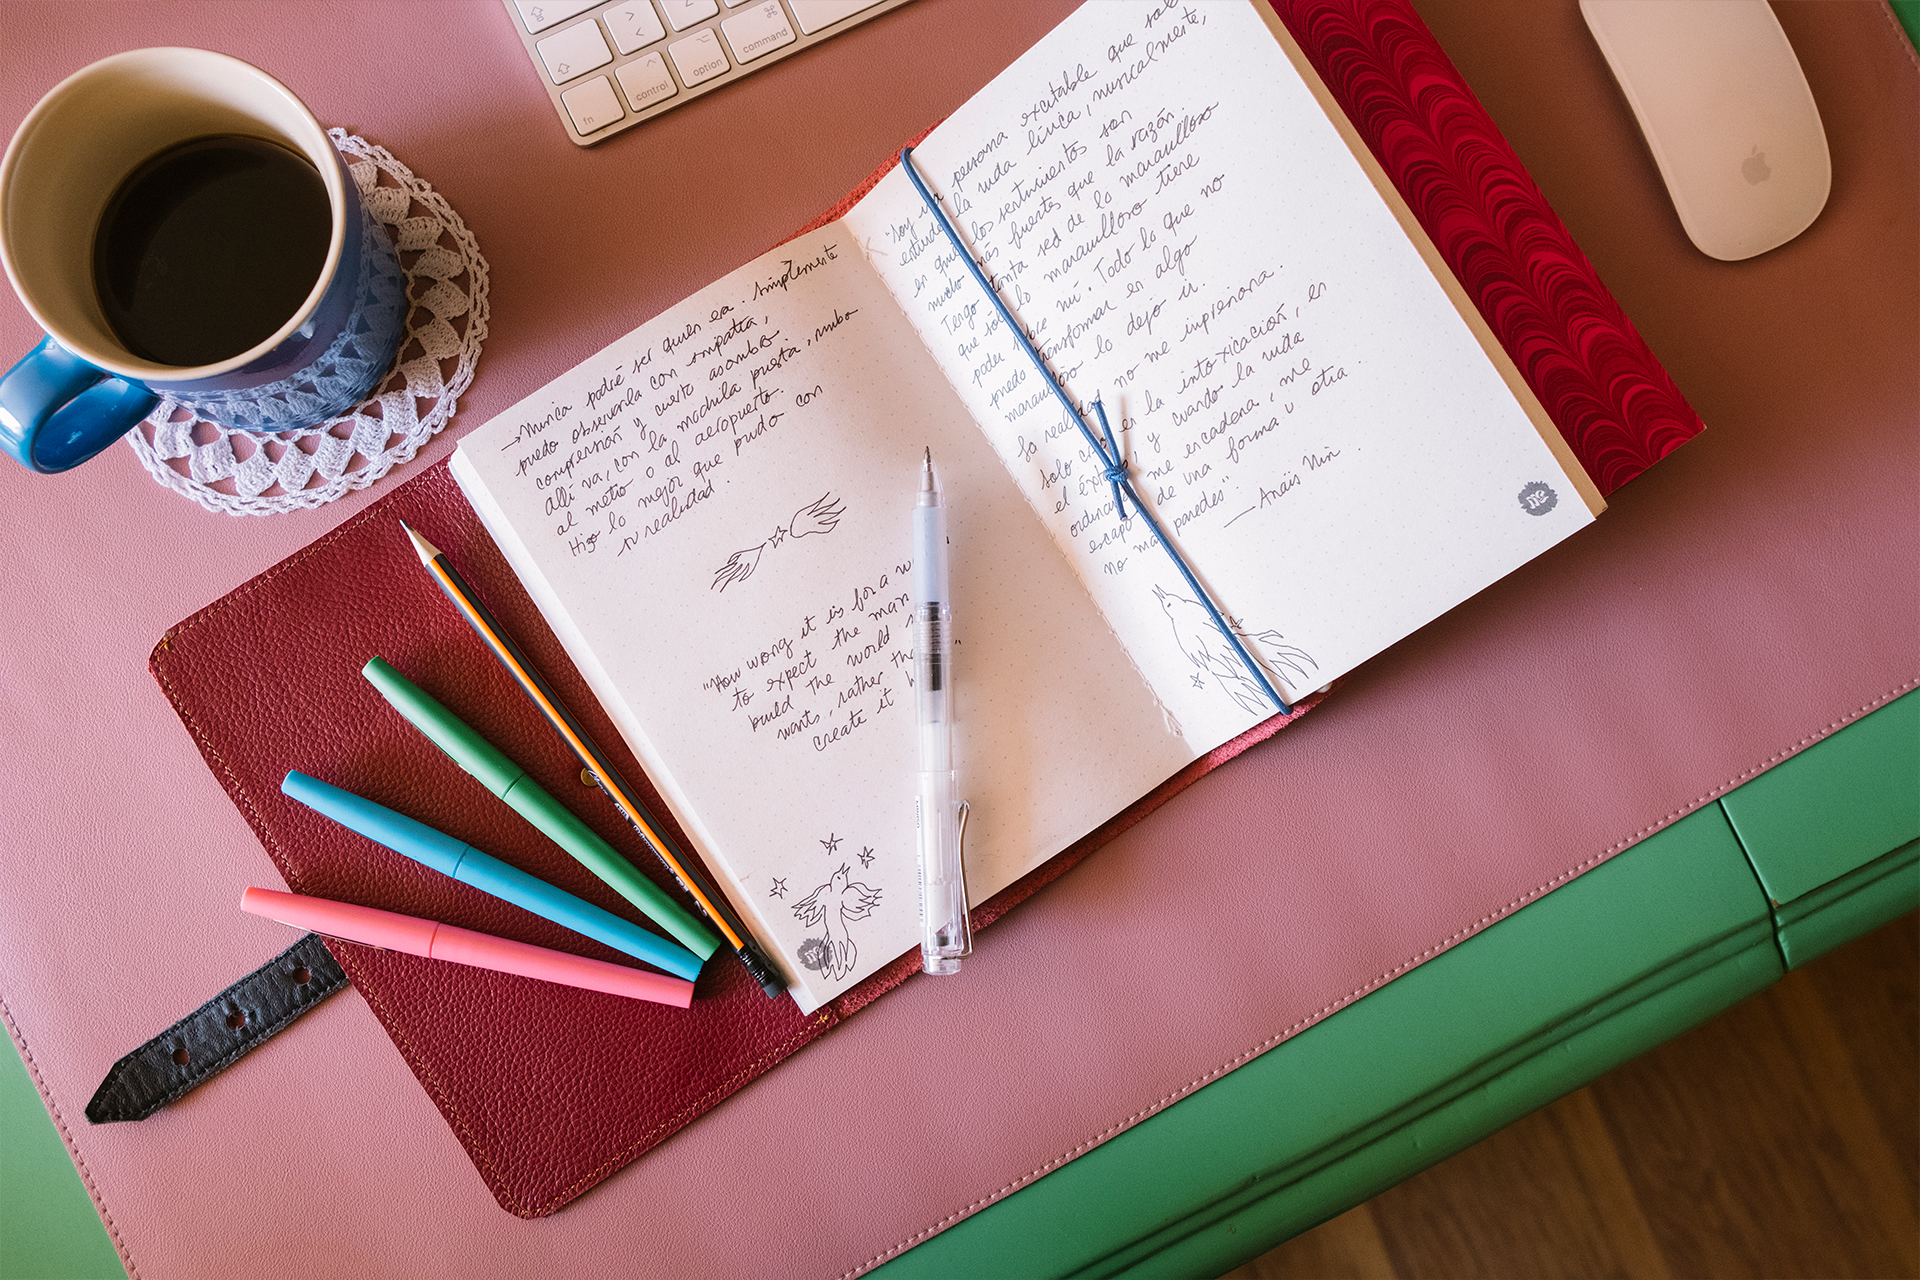 fn
control
option
command
⌘
→ Nunca podré ser quien era. Simplemente
puedo observarla con simpatía,
comprensión y cierto asombro.
Allí va, con la mochila puesta, rumbo
al metro o al aeropuerto.
Hizo lo mejor que pudo con
su realidad.
"How wrong it is for a
to expect the man
build the world
wants, rather
create it
"Soy una persona excitable que solo
entiende la vida lírica, musicalmente,
en quien los sentimientos son
mucho más fuertes que la razón
Tengo tanta sed de lo maravilloso
que sólo lo maravilloso tiene
poder sobre mí. Todo lo que no
puedo transformar en algo
maravilloso lo dejo ir.
La realidad no me impresiona.
Solo creo en la intoxicación, en
el éxtasis, y cuando la vida
ordinaria me encadena, me
escapo de una forma u otra.
No más paredes".
— Anaïs Nin